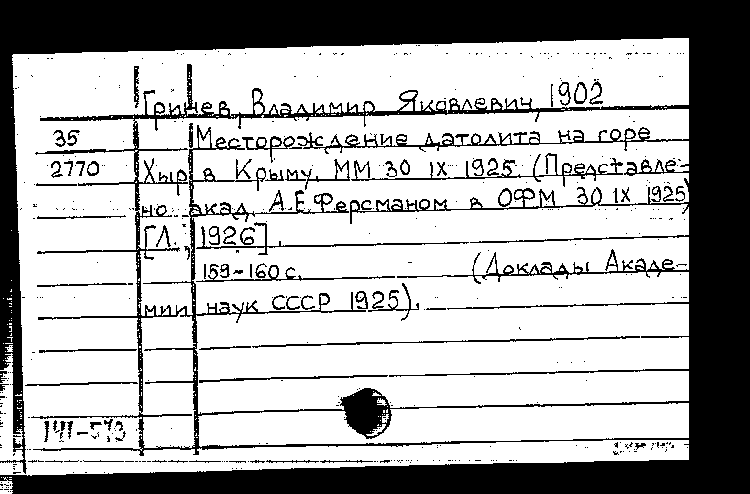 Гринев, Владимир Яковлевич, 1902
35 Месторождение датолита на горе
2770 Хыр в Крыму. ММ 30 IX 1925. (Представле-
но акад. А.Е.Ферсманом в ОФМ 30 IX 1925)
[Л., 1926].
159-160 с. (Доклады Акаде-
мии наук СССР 1925).
141-573